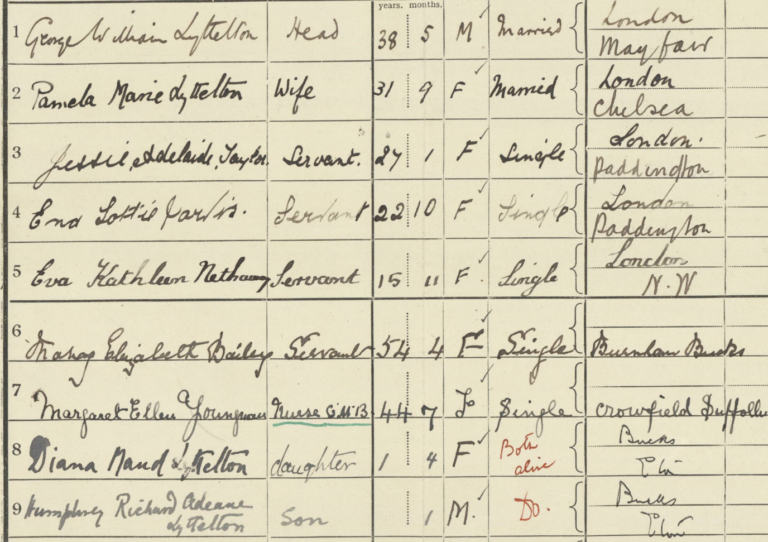 years. months.
1 George William Lyttelton Head 38 5 M Married London
Mayfair
2 Pamela Marie Lyttelton Wife 31 9 F Married London
Chelsea
3 Jessie Adelaide Taylor. Servant. 27 1 F Single London.
Paddington
4 Ena Lottie Jarvis. Servant 22 10 F Single London
Paddington
5 Eva Kathleen Servant 15 11 F. Single London
N.W
6 Elizabeth Bailey Servant 54 4 F Single Burnham Bucks
7 Margaret Ellen Youngman Nurse 44 7 F Single Crowfield Suffolk
8 Diana Maud Lyttelton daughter 1 4 F Both alive Bucks
Eton
9 Humphrey Richard Adeane Lyttelton Son 1 M. Do. Bucks
Eton